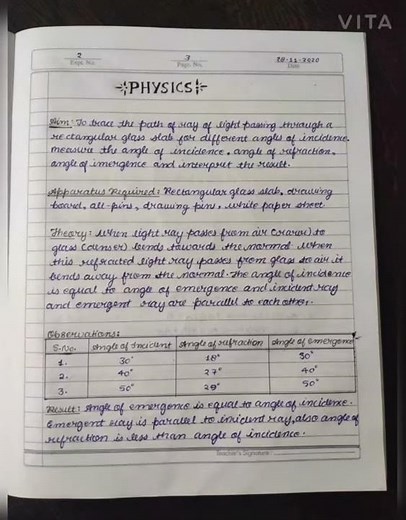 VITA
2 3 28-11-2020
Page No. Page No. Date
PHYSICS
Aim: To trace the path of ray of light passing through a
rectangular glass slab for different angles of incidence.
measure the angle of incidence, angle of refraction,
angle of imergence and interpret the result.
Apparatus Required: Rectangular glass slab, drawing
board, all-pins, drawing pins, white paper sheet
Theory: When light ray passes from air (rarer) to
glass (denser) bends towards the normal when
this refracted light ray passes from glass to air it
bends away from the normal. The angle of incidence
is equal to angle of emergence and incident ray
and emergent ray are parallel to each other.
Observations:
S.No. Angle of Incident Angle of refraction Angle of emergence
1. 30° 18° 30°
2. 40° 27° 40°
3. 50° 29° 50°
Result: Angle of emergence is equal to angle of incidence.
Emergent ray is parallel to incident ray, also angle of
refraction is less than angle of incidence.
Teacher's Signature: